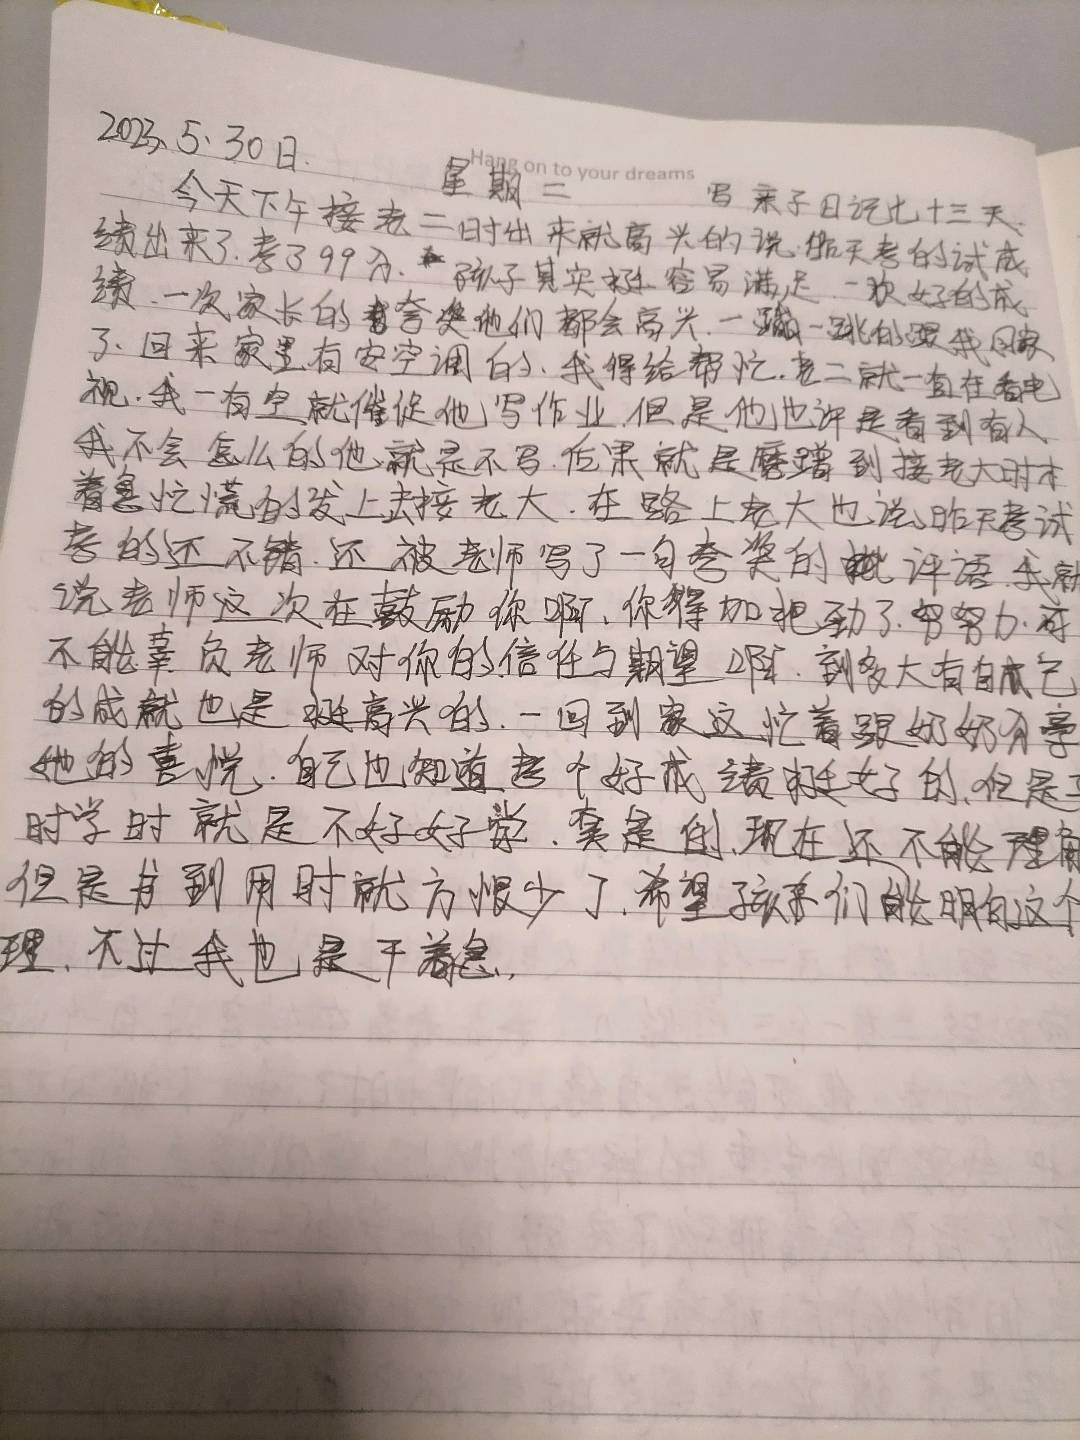 Hang on to your dreams
2023.5.30日. 星期二 写亲子日记七十三天.
今天下午接老二时出来就高兴的说.昨天考的试成
绩出来了.考了99分.孩子其实挺容易满足.一次好的成
绩.一次家长的夸奖他们都会高兴.一蹦一跳的跟我回家
了.回来家里有安空调的.我得给帮忙.老二就一直在看电
视.我一有空就催促他写作业.但是他也许是看到有人
我不会怎么的他就是不写.后果就是磨蹭到接老大时才
着急忙慌的发上去接老大.在路上老大也说昨天考试
考的还不错.还被老师写了一句夸奖的评语.我就
说老师这次在鼓励你啊.你得加把劲了.努努力.可
不能辜负老师对你的信任与期望啊.到多大有自己
的成就也是挺高兴的.一回到家这忙着跟奶奶分享
她的喜悦.自己也知道考个好成绩挺好的.但是
时学时就是不好好学.真是的.现在还不能理
但是书到用时就方恨少了.希望孩子们能明白这个
理.不过我也是干着急.